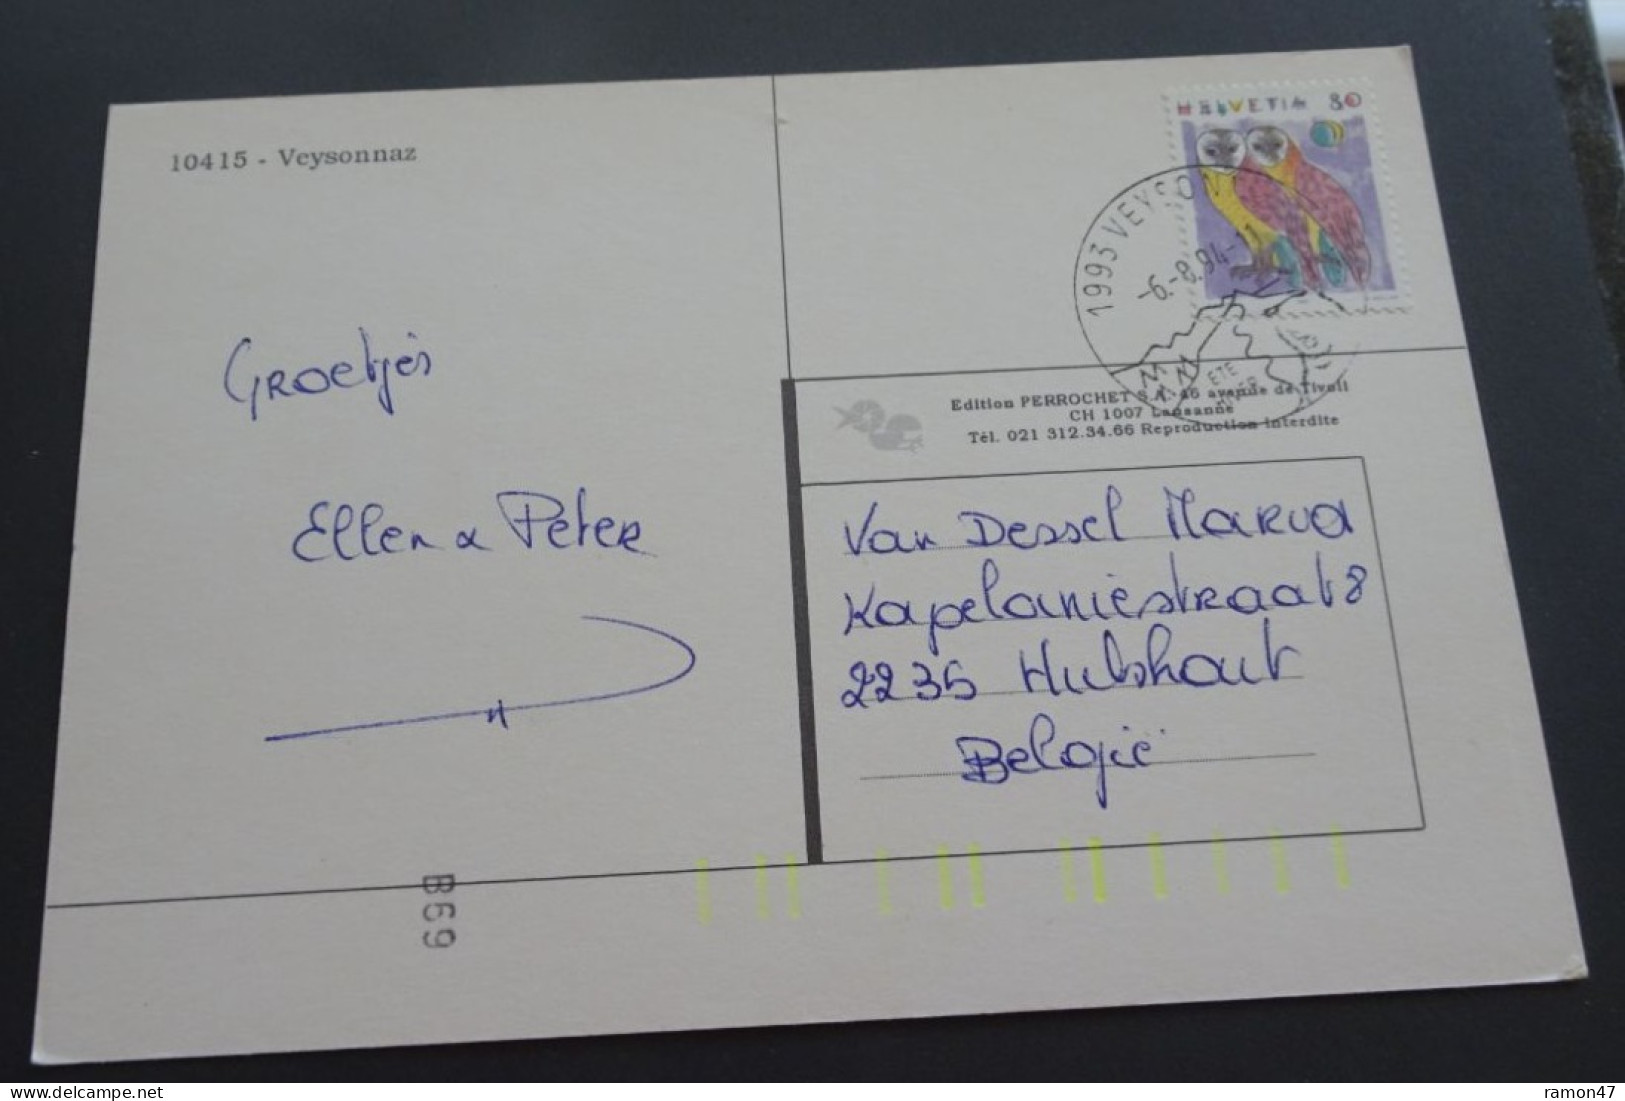 10415 - Veysonnaz
HELVETIA 80
1993 VEYSON
-6.-8.94-11
ETE
HIVER
Groetjes
Ellen & Peter
Edition PERROCHET S.A. 46 avenue de Tivoli
CH 1007 Lausanne
Tél. 021 312.34.66 Reproduction interdite
Van Dessel Maria
Kapelaniestraat 8
2235 Hulshout
België
B69
ramon47